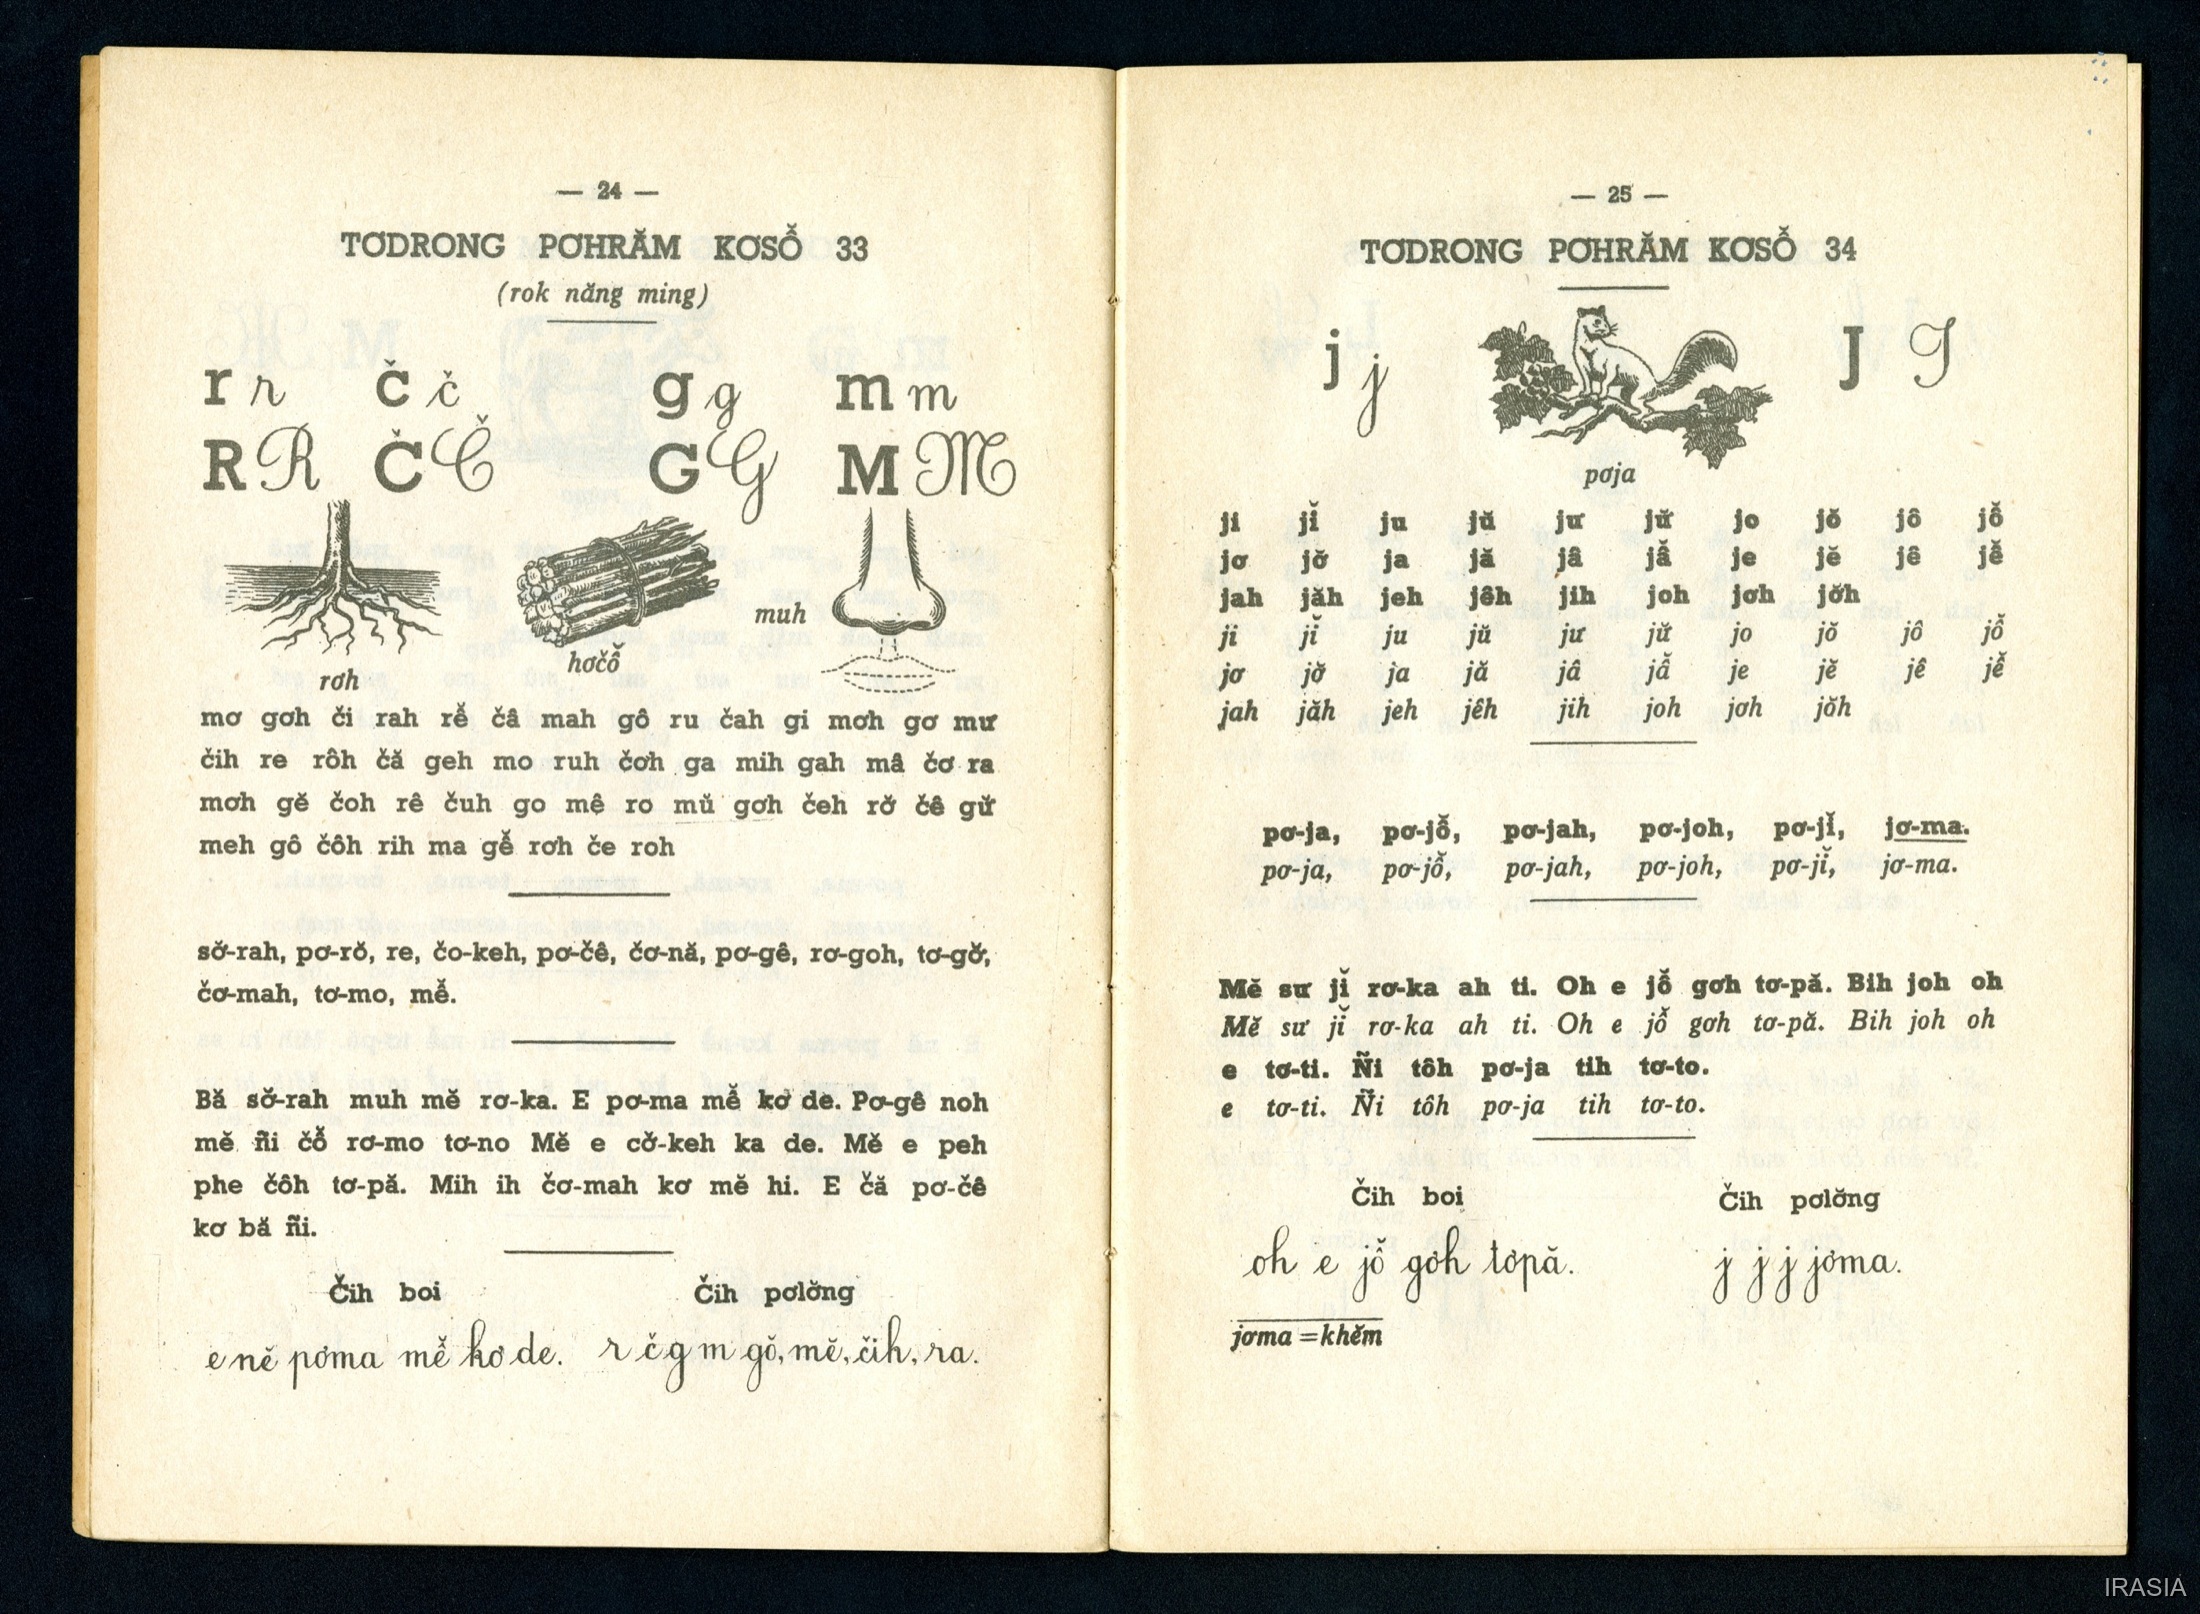 — 24 —
TƠDRONG PƠHRĂM KƠSỖ̆ 33
(rok năng ming)
r r č č g g m m
R R Č Č G G M M
muh
hơčô̆
rơh
mơ gơh či rah rê̆ čâ mah gô ru čah gi mơh gơ mư
čih re rôh čă geh mo ruh čơh ga mih gah mâ čơ ra
mơh gĕ čoh rê čuh go mê ro mŭ gơh čeh rơ̆ čê gư̆
meh gô čôh rih ma gê̆ rơh če roh
sơ̆-rah, pơ-rŏ, re, čo-keh, pơ-čê, čơ-nă, pơ-gê, rơ-goh, tơ-gơ̆,
čơ-mah, tơ-mo, mê̆.
Bă sơ̆-rah muh mĕ rơ-ka. E pơ-ma mê̆ kơ de. Pơ-gê noh
mĕ ñi čô̆ rơ-mo tơ-no Mĕ e cơ̆-keh ka de. Mĕ e peh
phe čôh tơ-pă. Mih ih čơ-mah kơ mĕ hi. E čă pơ-čê
kơ bă ñi.
Čih boi Čih pơlơ̆ng
e nĕ pơma mê̆ kơ de. r č g m gŏ, mĕ, čih, ra.
— 25 —
TƠDRONG PƠHRĂM KƠSÔ̆ 34
j j J J
pơja
ji jĭ ju jŭ jư jư̆ jo jŏ jô jô̆
jơ jơ̆ ja jă jâ jâ̆ je jĕ jê jê̆
jah jăh jeh jêh jih joh jơh jơ̆h
ji jĭ ju jŭ jư jư̆ jo jŏ jô jô̆
jơ jơ̆ ja jă jâ jâ̆ je jĕ jê jê̆
jah jăh jeh jêh jih joh jơh jăh
pơ-ja, pơ-jô̆, pơ-jah, pơ-joh, pơ-jĭ, jơ-ma.
pơ-ja, pơ-jô̆, pơ-jah, pơ-joh, pơ-jĭ, jơ-ma.
Mĕ sư jĭ rơ-ka ah ti. Oh e jô̆ gơh tơ-pă. Bih joh oh
Mĕ sư jĭ rơ-ka ah ti. Oh e jô̆ gơh tơ-pă. Bih joh oh
e tơ-ti. Ñi tôh pơ-ja tih tơ-to.
e tơ-ti. Ñi tôh pơ-ja tih tơ-to.
Čih boi Čih pơlơ̆ng
oh e jô̆ gơh tơpă. j j j jơma.
jơma = khĕm
IRASIA